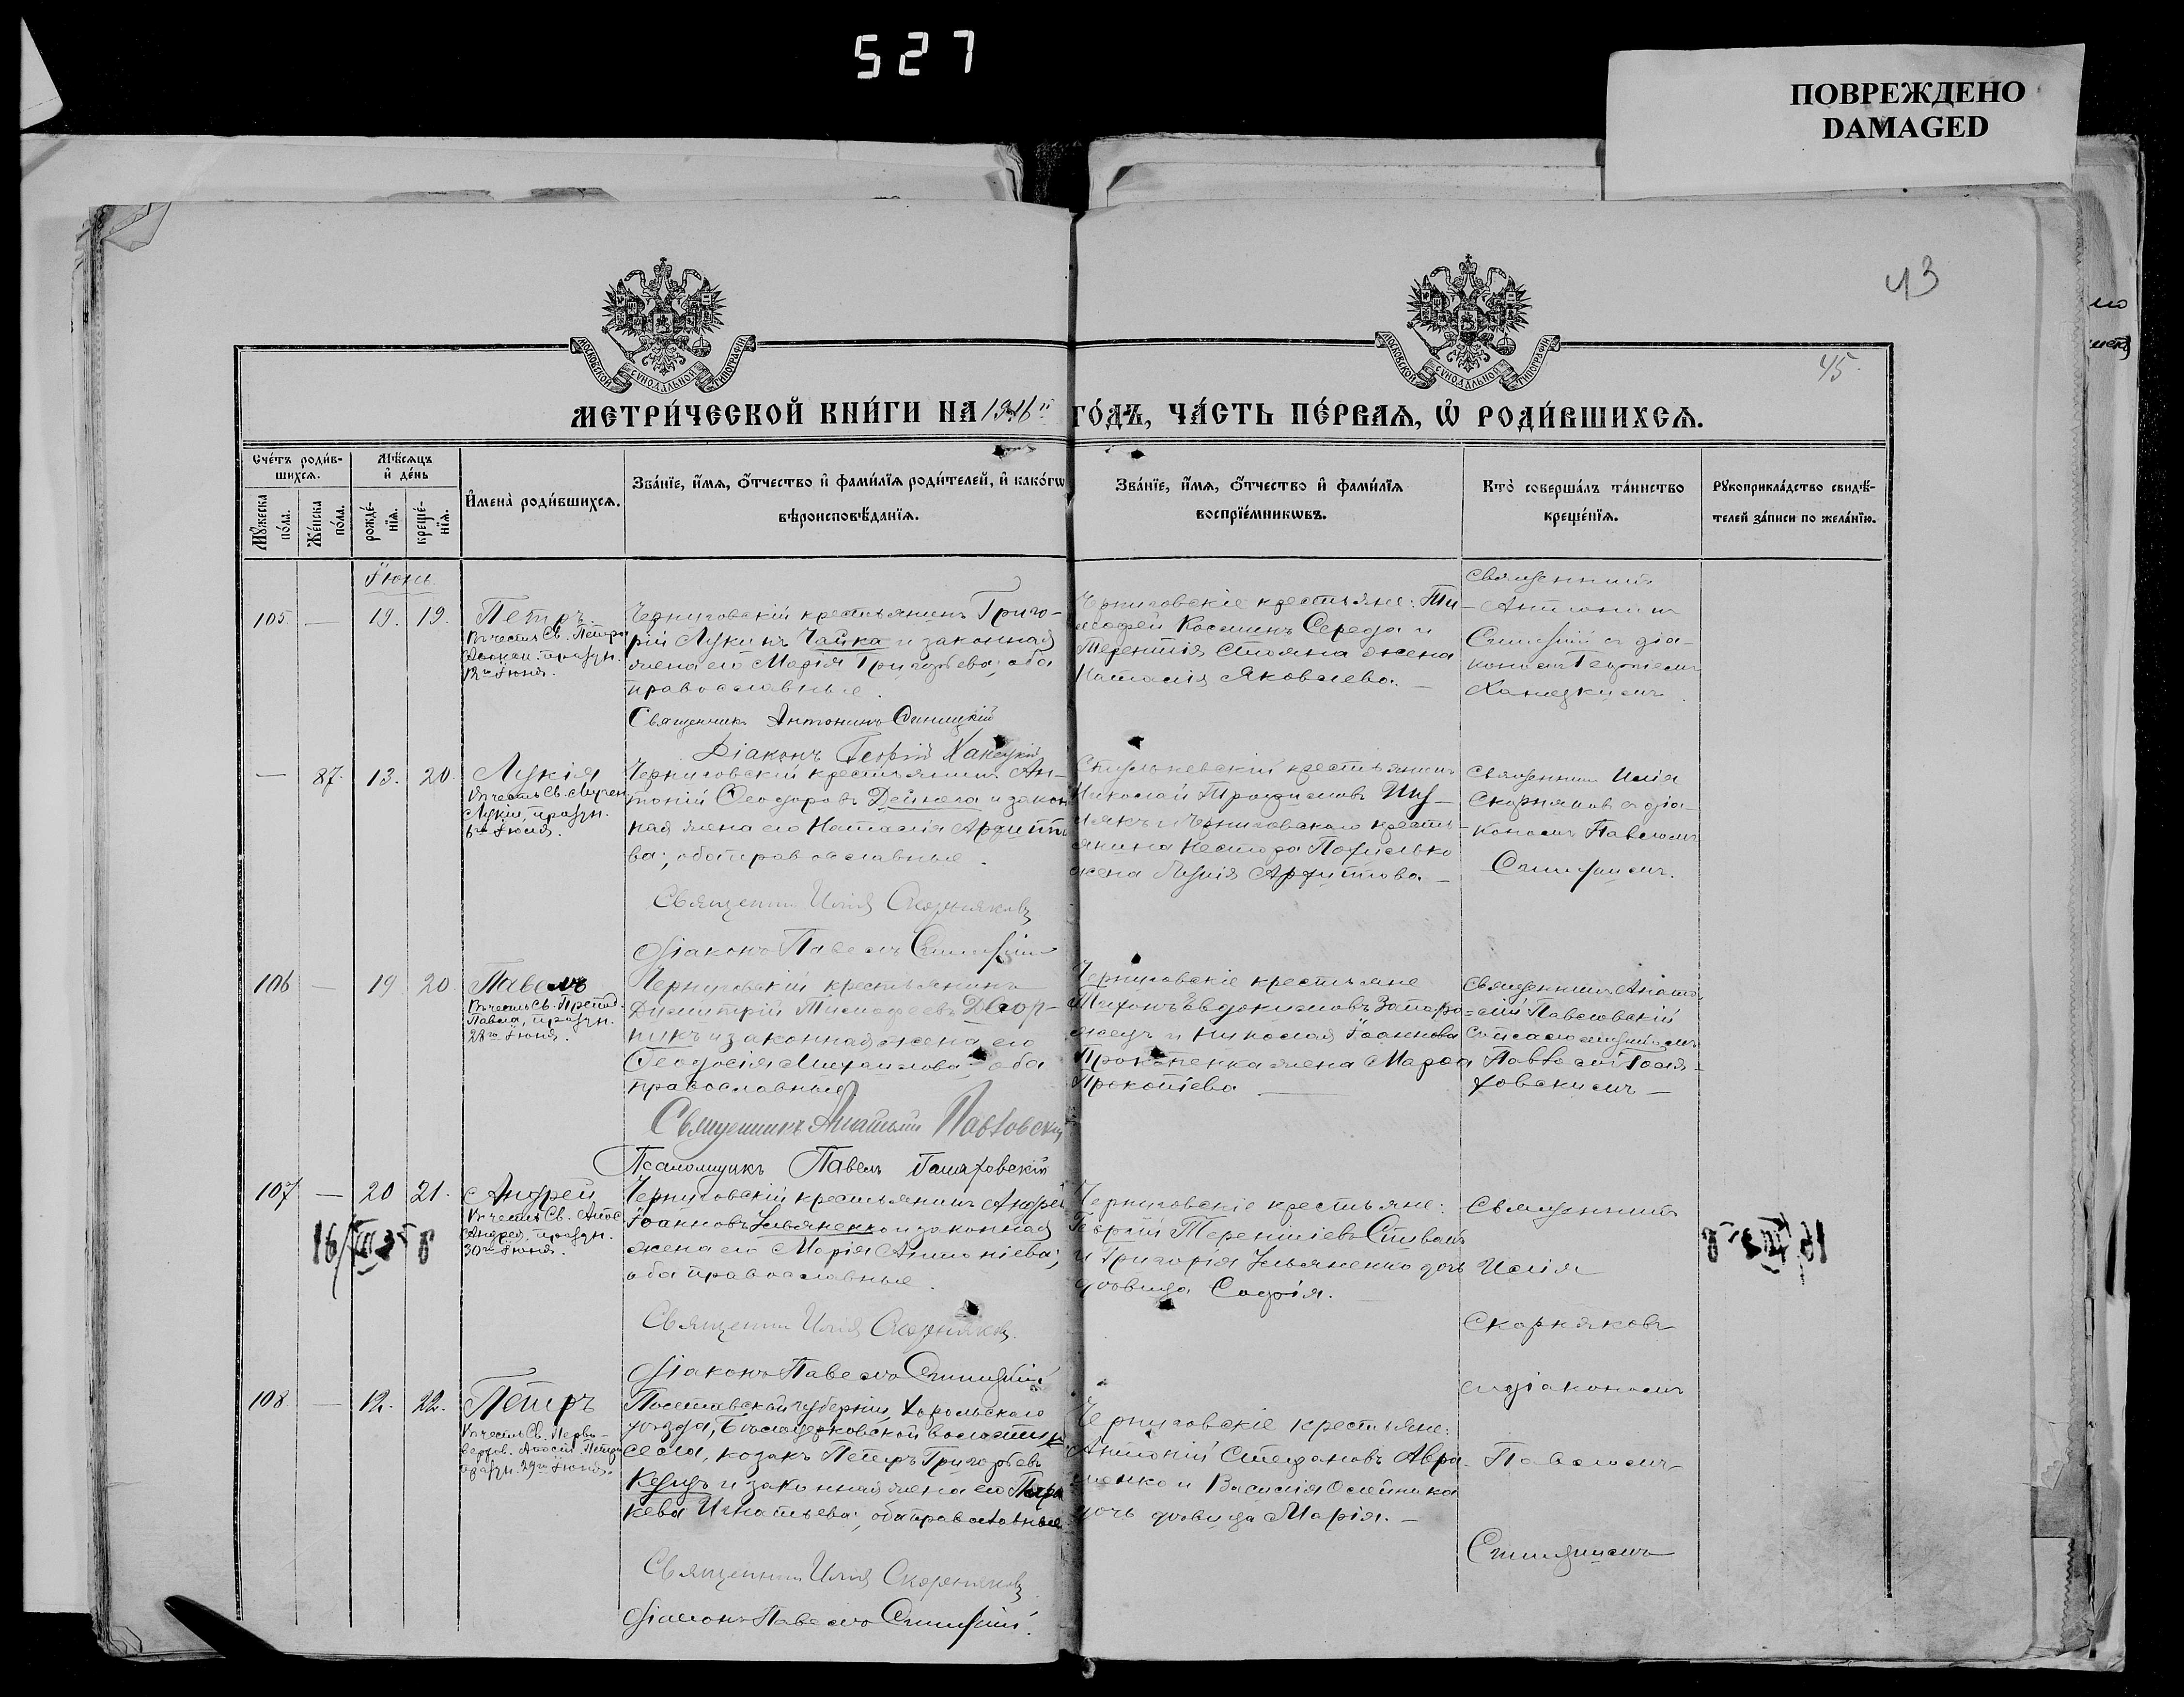 527
ПОВРЕЖДЕНО
DAMAGED
43
45
МОСКОВСКОЙ СУНОДАЛЬНОЙ ТИПОГРАФІИ
МОСКОВСКОЙ СУНОДАЛЬНОЙ ТИПОГРАФІИ
МЕТРИ́ЧЕСКОЙ КНИ́ГИ НА 1916 ГО́ДЪ, ЧА́СТЬ ПЕ́РВАѦ, Ѡ҆ РОДИ́ВШИХСѦ.
Сче́тъ роди́в-
шихсѧ.
Мѣ́сѧцъ
и҆ де́нь
Мꙋ́жеска
по́ла.
Же́нска
по́ла.
рожде́-
нїѧ.
креще́-
нїѧ.
И҆мена̀ роди́вшихсѧ.
Зва́нїе, и҆́мѧ, ѻ҆́тчество и҆ фами́лїѧ роди́телей, и҆ како́гѡ
вѣроисповѣ́данїѧ.
Зва́нїе, и҆́мѧ, ѻ҆́тчество и҆ фами́лїѧ
воспрїе́мникѡвъ.
Кто̀ соверша́лъ та́инство
креще́нїѧ.
Рꙋкоприкла́дство свидѣ́-
телей за́писи по жела́нїю.
Іюнь
105 — 19. 19. Петръ
Въ честь Св. Петра
Аѳонск. праздн.
12го Іюня.
Черниговскій крестьянинъ Григо-
рій Лукинъ Чайка и законная
жена его Марія Григорьева; оба
православные.
Священникъ Антонинъ Синицкій
Діаконъ Георгій Ханецкій
Черниговскіе крестьяне: Ти-
моѳей Косминъ Середа и
Терентія Стояна жена
Наталія Яковлева. —
Священникъ
Антонинъ
Синицкій съ діа-
кономъ Георгіемъ
Ханецкимъ.
— 87. 13. 20. Лукія
Въ честь Св. Мучен.
Лукіи, праздн.
6го Іюля.
Черниговскій крестьянинъ Ан-
тоній Ѳеодоровъ Дейнега и закон
ная жена его Наталія
ва; оба православные.
Священникъ Илія Скорняковъ
Діаконъ Павелъ Синицкій
крестьянинъ
Николай Трофимовъ
и Черниговскаго кресть-
янина Нестора
жена Лукія
Священникъ Илія
Скорняковъ съ діа-
кономъ Павломъ
Синицкимъ.
106 — 19 20. Павелъ
Въ честь Св. Препод.
Павла, праздн.
28го Іюня.
Черниговскій крестьянинъ
Димитрій Тимоѳеевъ Двор-
никъ и законная жена его
Ѳеодосія Михаилова; оба
православные
Священникъ Анатолій Павловскій
Псаломщикъ Павелъ Голяховскій
Черниговскіе крестьяне
Тихонъ Евдокимовъ Запоро-
жецъ и Николая Іоаннова
Прокопенка жена Марѳа
Прокопіева —
Священникъ Анато-
лій Павловскій
съ псаломщикомъ
Павломъ Голя-
ховскимъ —
107 — 20 21. Андрей
Въ честь Св. Апос.
Андрея, праздн.
30го Іюня.
Черниговскій крестьянинъ Андрей
Іоанновъ Ульяненко и законная
жена его Марія Антоніева;
оба православные.
Священникъ Илія Скорняковъ.
Діаконъ Павелъ Синицкій
Черниговскіе крестьяне:
Терентіевъ
и Григорія Ульяненко дочь
дѣвица Софія.
Священникъ
Илія
Скорняковъ
съ діакономъ
Павломъ
Синицкимъ
108 — 12. 22. Петръ
Въ честь Св. Перво-
верхов. Апост. Петра
праздн. 29го Іюня.
Полтавской губерніи, Хорольскаго
уѣзда, Бѣлоцерковской волости и
села, козакъ Петръ Григорьевъ
и законная жена его Пара
кева Игнатьева; оба православные
Священникъ Илія Скорняковъ
Діаконъ Павелъ Синицкій.
Черниговскіе крестьяне:
Антоній Стефановъ Авра-
менко и Василія Олейника
дочь дѣвица Марія. —